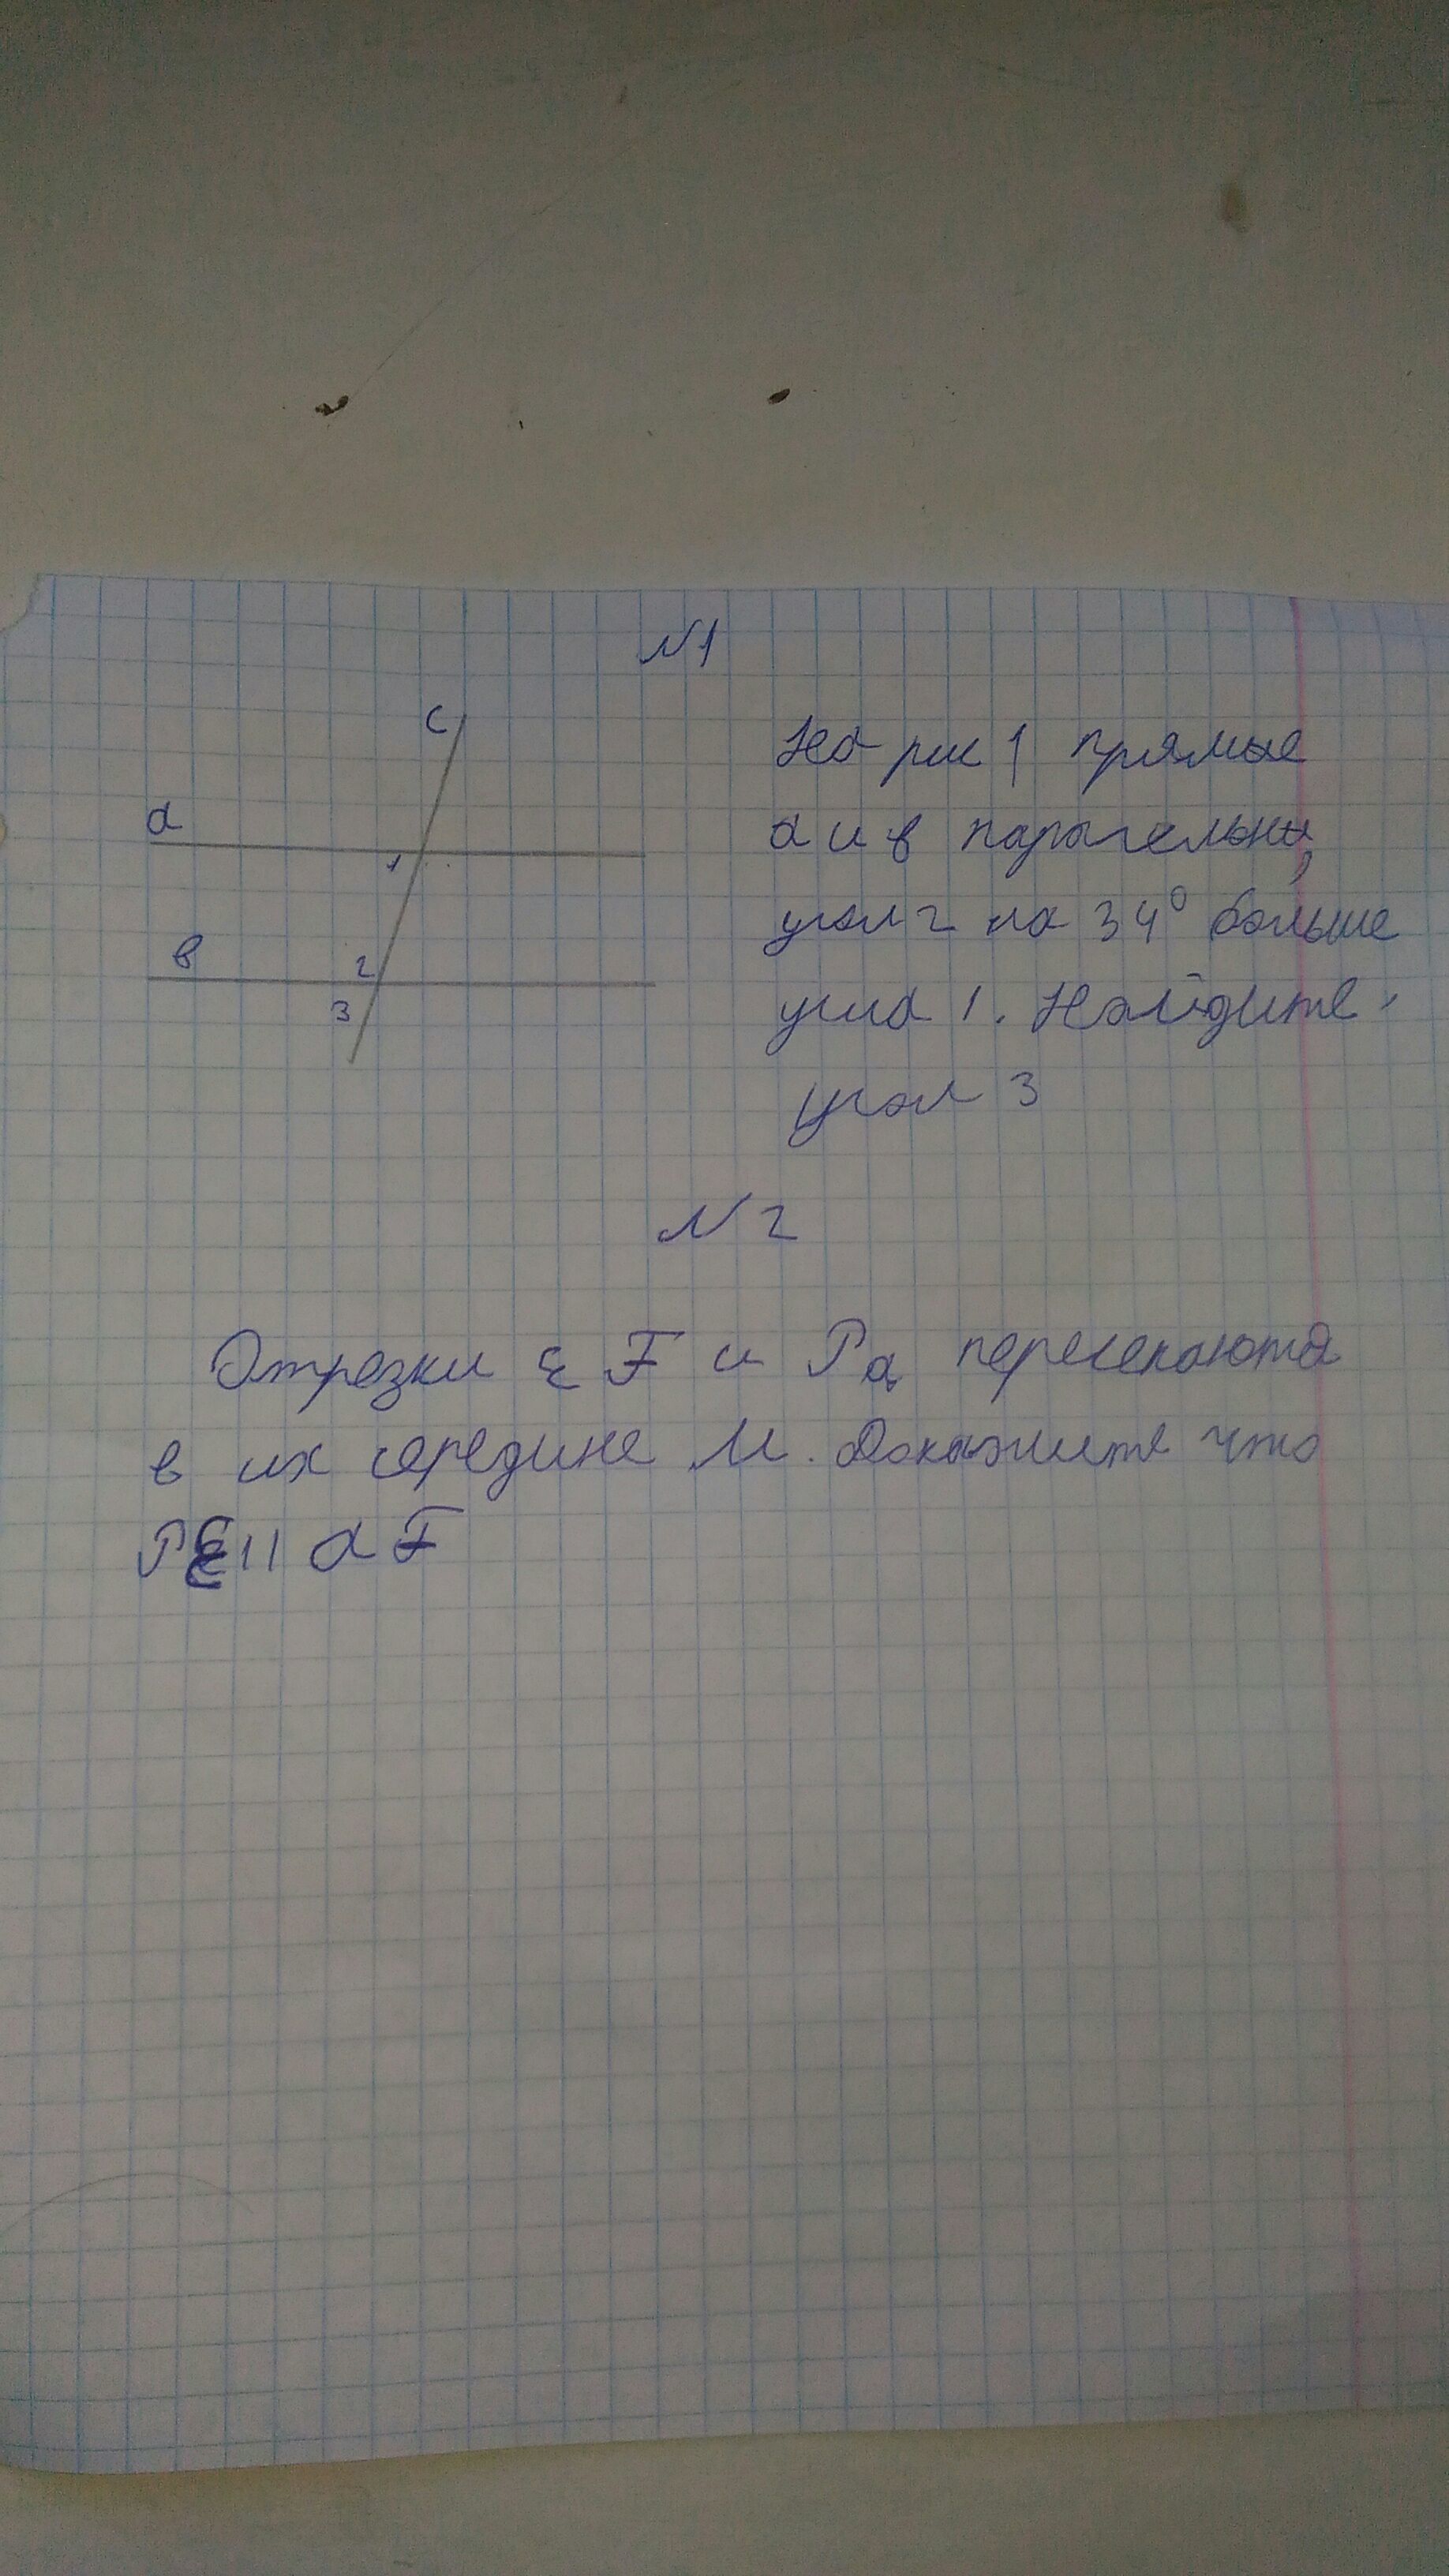 N1
c
На рис 1 прямые
a
а и в паралельны,
1
угол 2 на 34° больше
в
2
угла 1. Найдите
3
угол 3
N 2
Отрезки EF и PQ пересекаются
в их середине M. Докажите что
PE || QF